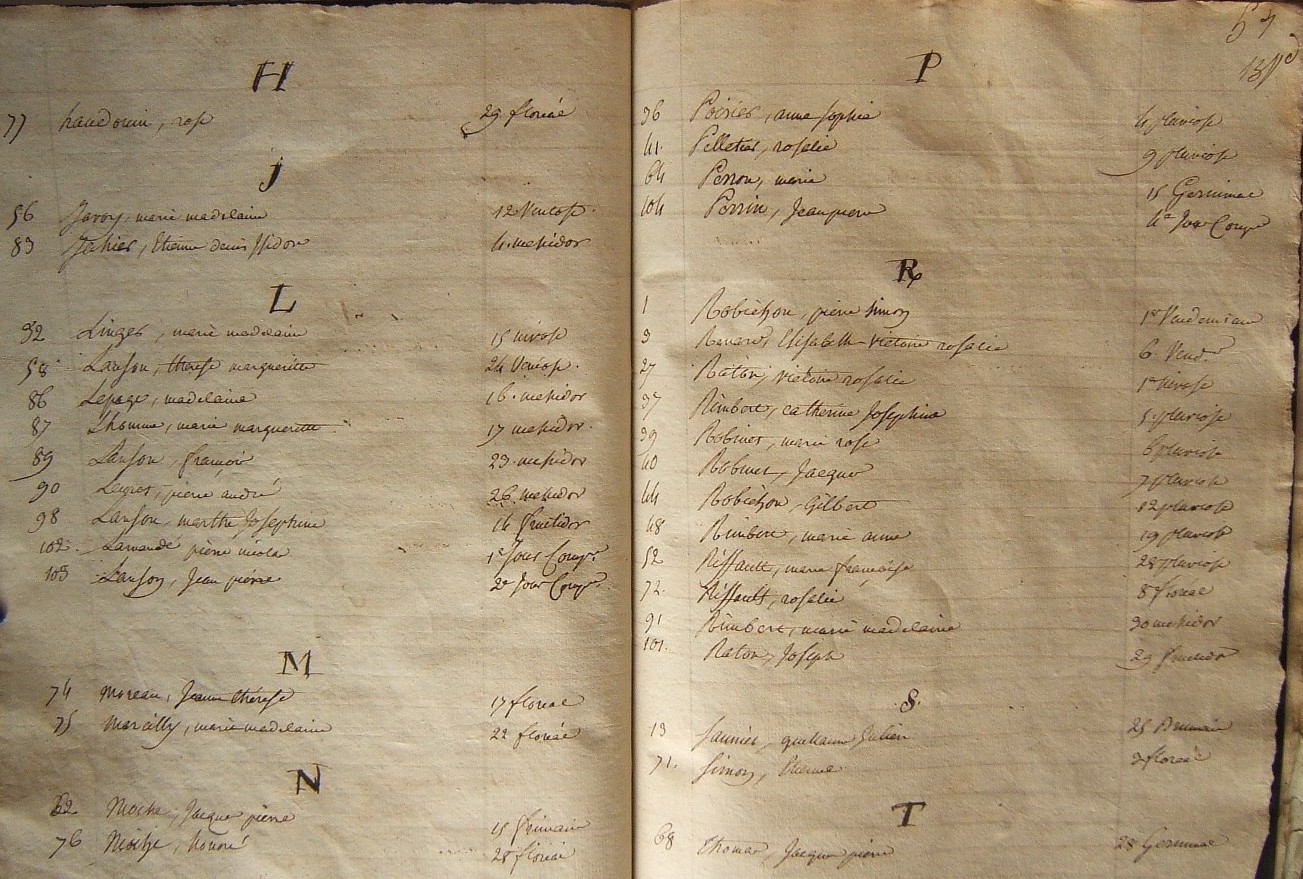 H
77 haudouin, rose 29 floréal
J
56 Javoy, marie madelaine 12 Ventose.
83 Jahier, Etienne denis Isidore 4. mesidor
L
32 Linger, marie madelaine 15 nivose
58 Lanson, therese margueritte 24 Ventose.
86 Lepage, madelaine 16. mesidor
87 Lhomme, marie margueritte 17 mesidor
89 Lanson, françois 23. mesidor
90 pierre andré 26. mesidor
98 Lanson, marthe Josephine 14 fructidor
102. Lamandé pierre nicola 1er Jour Comp.re
103 Lanson, Jean pierre 2e Jour Comp.re
M
74 moreau, Jeanne thérese 17 floreal
75 Marcilly, marie madelaine 22 floréal
N
22 Jacque pierre 15 frimaire
76 honoré 28 floréal
54
P
36 Poirier, anne sophie 4 pluviose
41. Pelletier, rosalie 9 pluviose
64 Perron, marie 15 Germinal
104 Perrin, Jean pierre 4e Jour Comp.re
R
1 Robichon, pierre simon 1er Vendemiaire
3 Renard Elisabeth victoire rosalie 6 Vend.re
27 Raton, victoire rosalie 1er nivose
37 Rimbert, catherine Josephine 5. pluviose
39 Robinet, marie rose 6 pluviose
40 Robinet, Jacque 7 pluviose
44 Robichon, Gilbert 12 pluviose
48 Rimbert, marie anne 19 pluviose
52 Riffault, marie françoise 28 pluviose
72. Riffault, rosalie 8 floréal
91 Rimbert, marie madelaine 30 mesidor
101. Raton, Joseph 29 fructidor
S.
13 Saunier, guillaume Julien 25 Brumaire
71. Simon, Etienne 3 floreal
T
68 thomas, Jacque pierre 28 Germinal